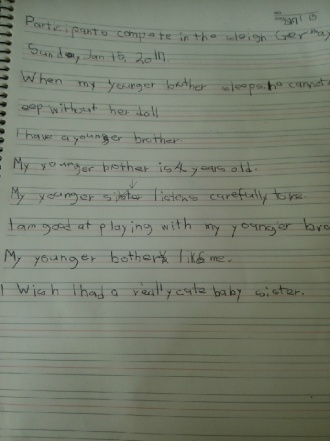 Participants compete in the sleigh Germa
Sunday, Jan 15, 2017.
When my younger bother sleeps.he cannot
eep without her doll
I have a younger brother.
My younger brother is 4 years old.
My younger sister listens carefully to me.
I am good at playing with my younger bro
My younger bother likes me.
I Wish I had a really cute baby sister.